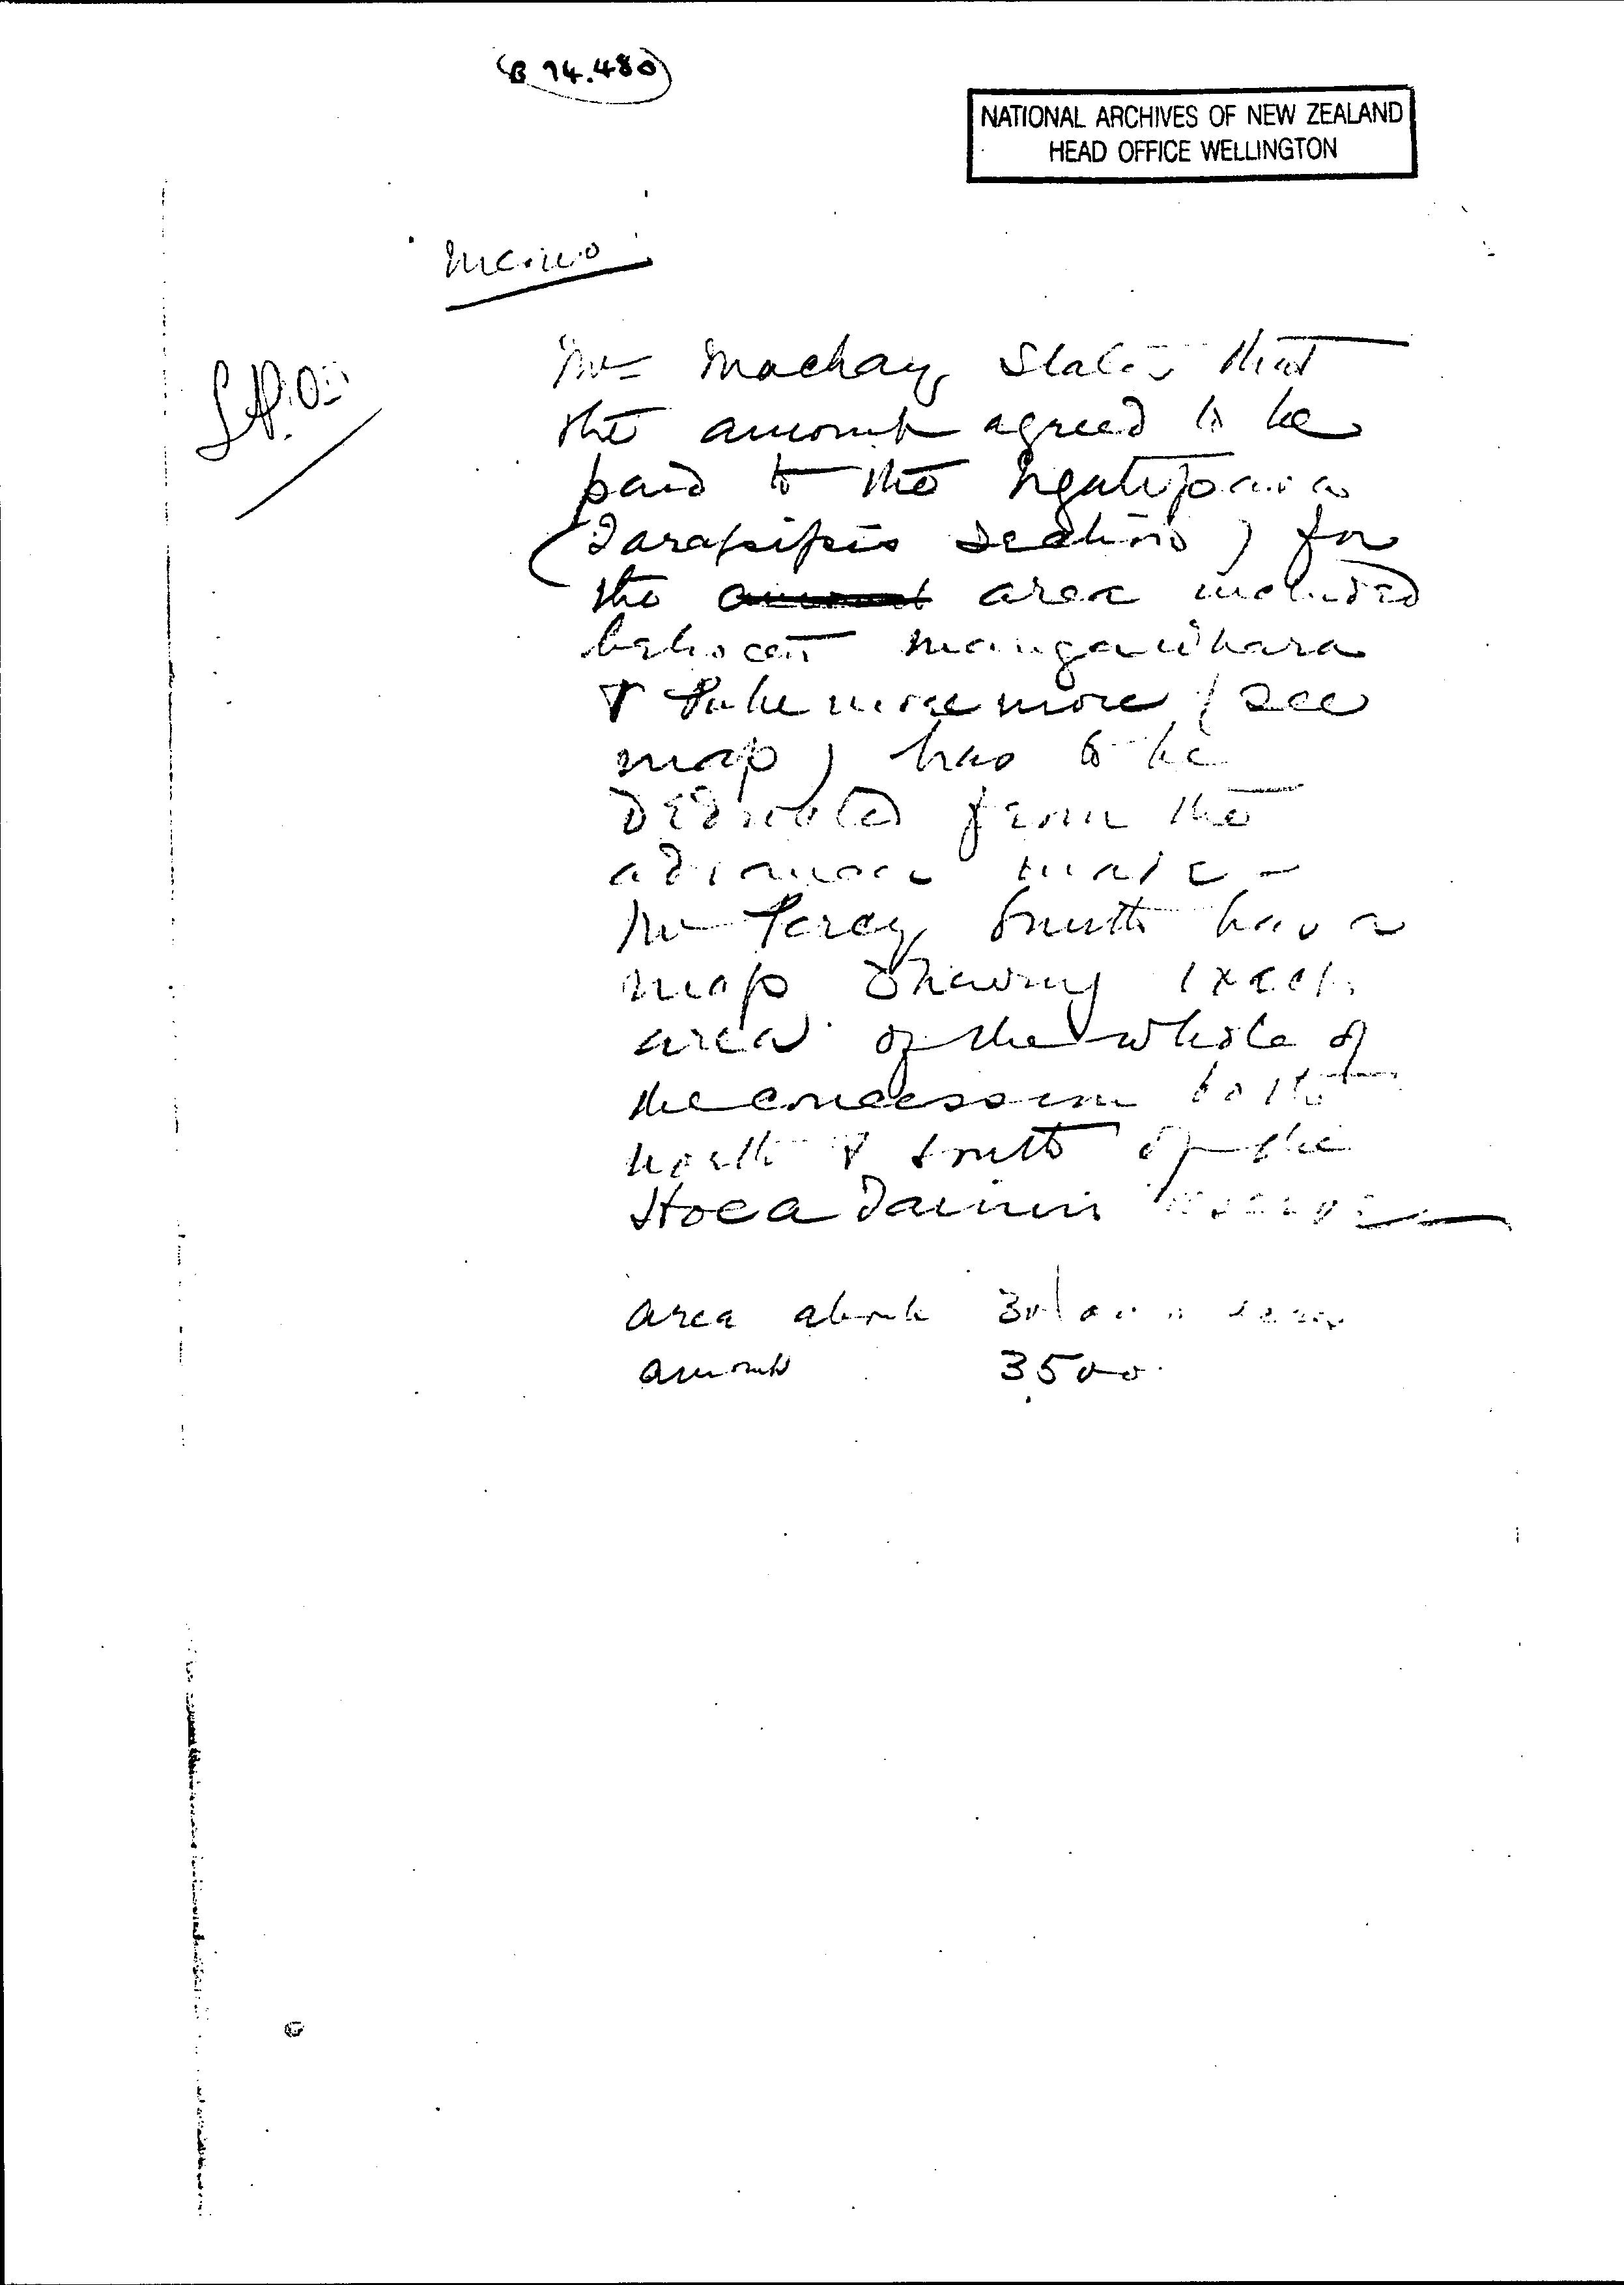 (B 74.480)
NATIONAL ARCHIVES OF NEW ZEALAND
HEAD OFFICE WELLINGTON
Memo
Mr Mackay states that
the amount agreed to be
paid to the Ngatipaoa
(Tarapipipi section) for
the amount area included
between Mangawhara
& Pukemoremore (see
map) has to be
deducted from the
advance made -
Mr Percy Smith has a
map shewing exact
area of the whole of
the concession both
north & south of the
Hoea Tainui
area about
amount 3500